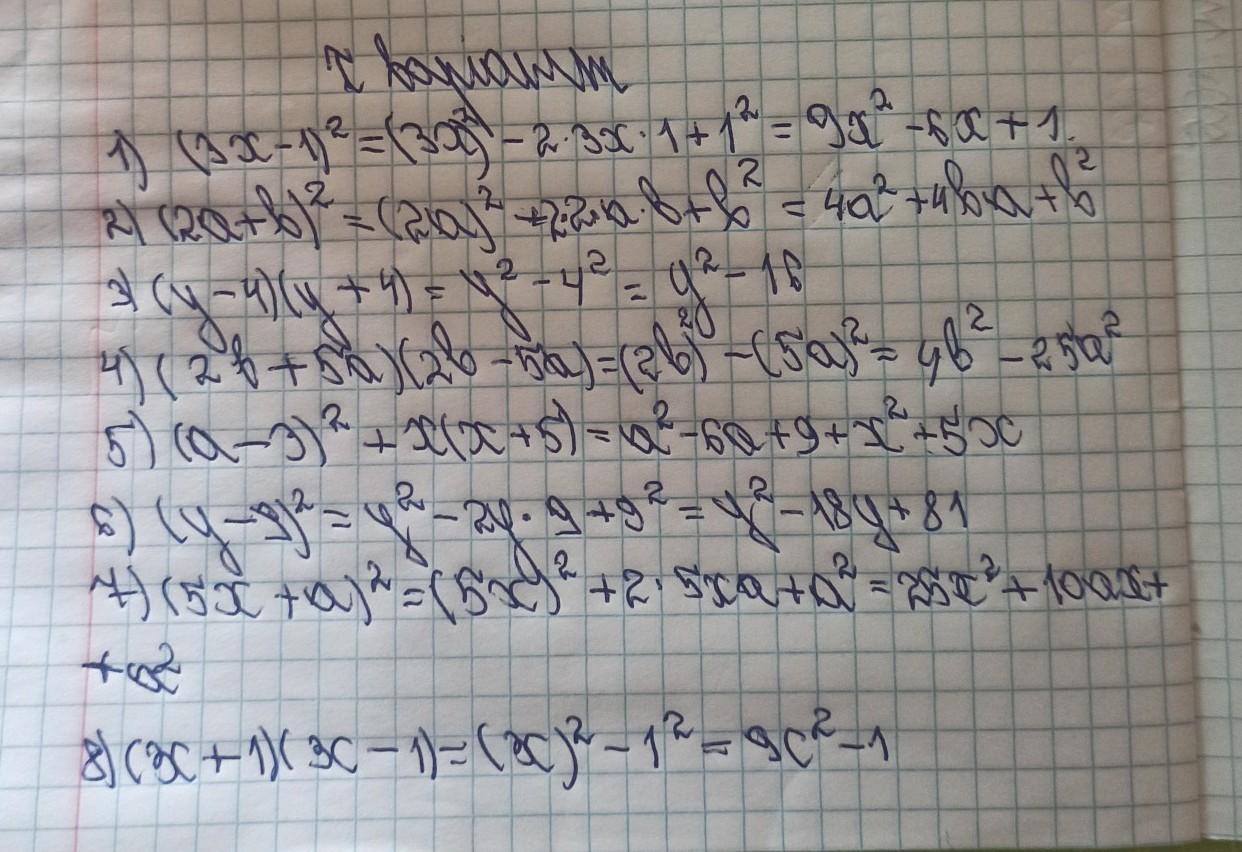 I вариант
1) (3x-1)² = (3x)² - 2·3x·1 + 1² = 9x² - 6x + 1.
2) (2a+b)² = (2a)² + 2·2·a·b + b² = 4a² + 4ba + b²
3) (y-4)(y+4) = y² - 4² = y² - 16
4) (2b+5a)(2b-5a) = (2b)² - (5a)² = 4b² - 25a²
5) (a-3)² + x(x+5) = a² - 6a + 9 + x² + 5x
6) (y-9)² = y² - 2y·9 + 9² = y² - 18y + 81
7) (5x+a)² = (5x)² + 2·5xa + a² = 25x² + 10ax +
+ a²
8) (3c+1)(3c-1) = (3c)² - 1² = 9c² - 1